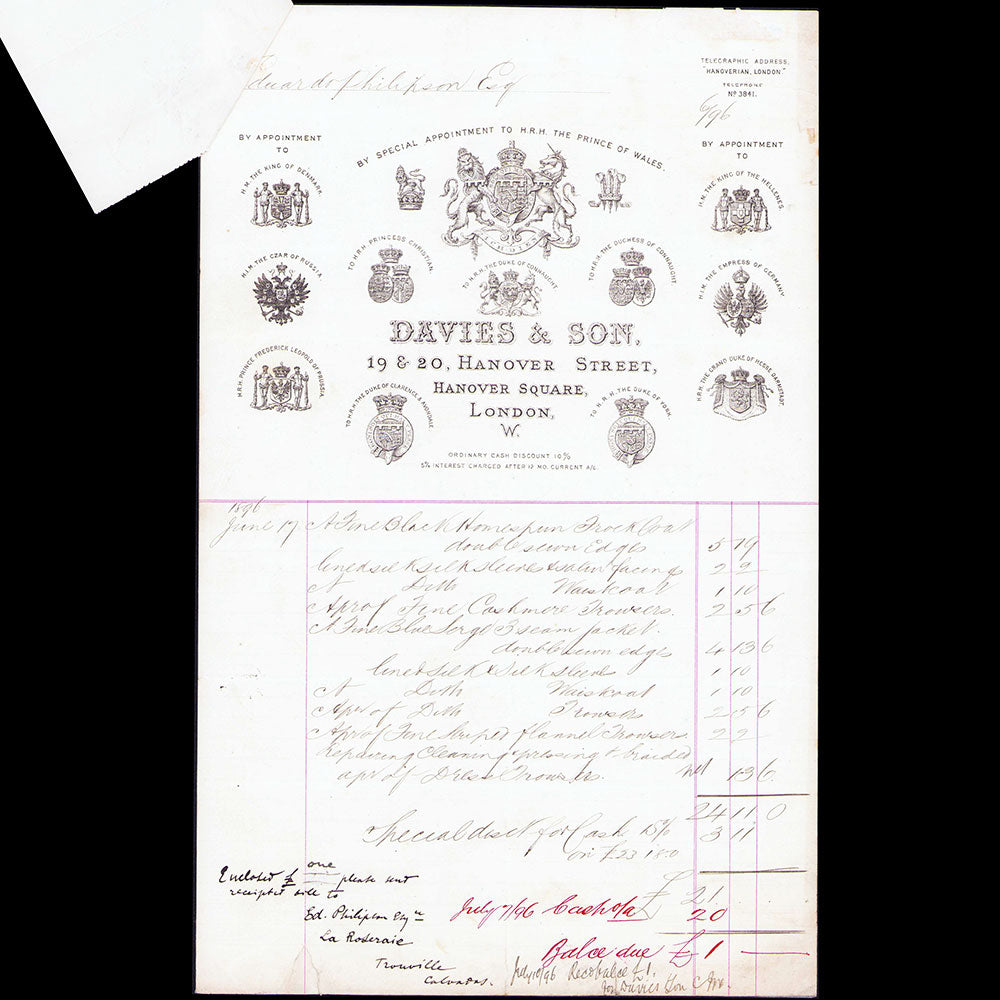 Eduardo Philipson Esq
TELEGRAPHIC ADDRESS,
"HANOVERIAN, LONDON"
TELEPHONE
Nº 3841.
6/96
BY SPECIAL APPOINTMENT TO H.R.H. THE PRINCE OF WALES.
BY APPOINTMENT
TO
H.M. THE KING OF DENMARK
H.I.M. THE CZAR OF RUSSIA
H.R.H. PRINCE FREDERICK LEOPOLD OF PRUSSIA
TO H.R.H. PRINCESS CHRISTIAN.
TO H.R.H. THE DUKE OF CONNAUGHT
TO H.R.H. THE DUCHESS OF CONNAUGHT
BY APPOINTMENT
TO
H.M. THE KING OF THE HELLENES.
H.I.M. THE EMPRESS OF GERMANY
H.R.H. THE GRAND DUKE OF HESSE DARMSTADT.
DAVIES & SON,
19 & 20, HANOVER STREET,
HANOVER SQUARE,
LONDON,
W.
TO H.R.H. THE DUKE OF CLARENCE & AVONDALE
TO H.R.H. THE DUKE OF YORK.
ORDINARY CASH DISCOUNT 10%
5% INTEREST CHARGED AFTER 12 MO. CURRENT A/C.
1896
June 17 A Fine Black Homespun Frock Coat
double sewn Edges 5 19
lined silk silk sleeves & satin facings 2 2 -
A Ditto Waistcoat 1 10
A pr of Fine Cashmere Trowsers. 2 5 6
A Fine Blue Serge 3 seam jacket.
double sewn edges 4 13 6
lined silk & silk sleeves 1 10
A Ditto Waistcoat 1 10
A pr of Ditto Trowsers 2 5 6
A pr of Fine Striped flannel Trowsers 2 2 -
Repairing Cleaning & pressing & braided
a pr of Dress Trowsers. net 13 6
24 11 0
Special disct for Cash 15% 3 11
on £23 18 0
£ 21
July 7/96 Cash o/a 20
Balce due £ 1 —
Enclosed £ one please send
receipted bill to
Ed. Philipson Esqre
La Roseraie
Trouville
Calvados.
July 10/96 Recd balce £1.
for Davies & Son